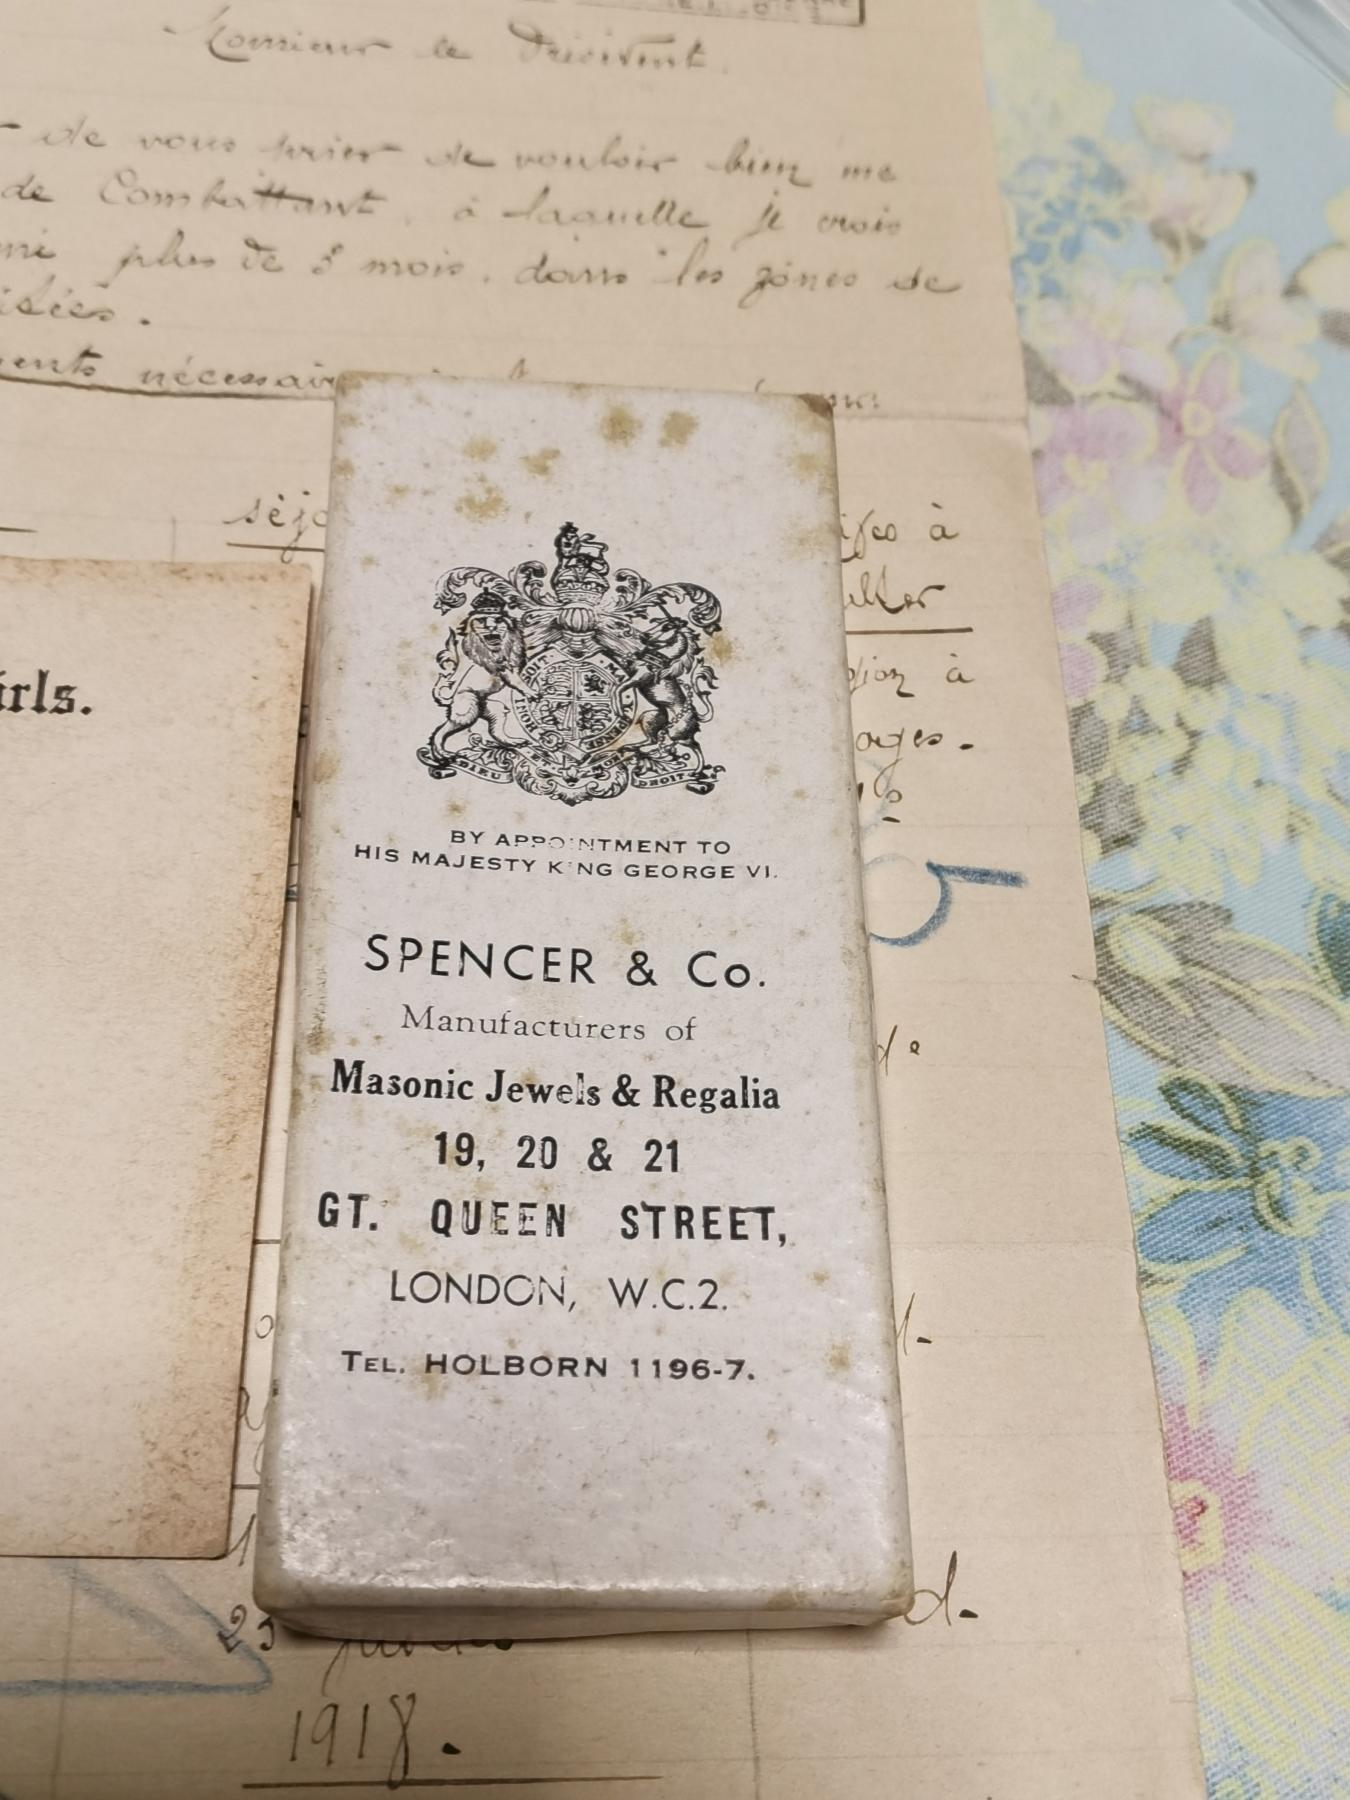 Monsieur le Président.
de vous prier de vouloir bien me
de Combattant, à laquelle je crois
plus de 3 mois, dans les zones de
nécessair
séjo
à
à
DIEU ET MON DROIT
BY APPOINTMENT TO
HIS MAJESTY KING GEORGE VI.
irls.
SPENCER & Co.
Manufacturers of
Masonic Jewels & Regalia
19, 20 & 21
GT. QUEEN STREET,
LONDON, W.C.2.
TEL. HOLBORN 1196-7.
1918.